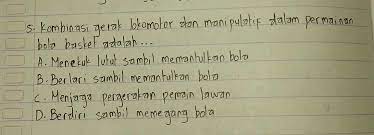 5. Kombinasi gerak lokomotor dan manipulatif dalam permainan
bola basket adalah ...
A. Menekuk lutut sambil memantulkan bola
B. Berlari sambil memantulkan bola
C. Menjaga pergerakan pemain lawan
D. Berdiri sambil memegang bola